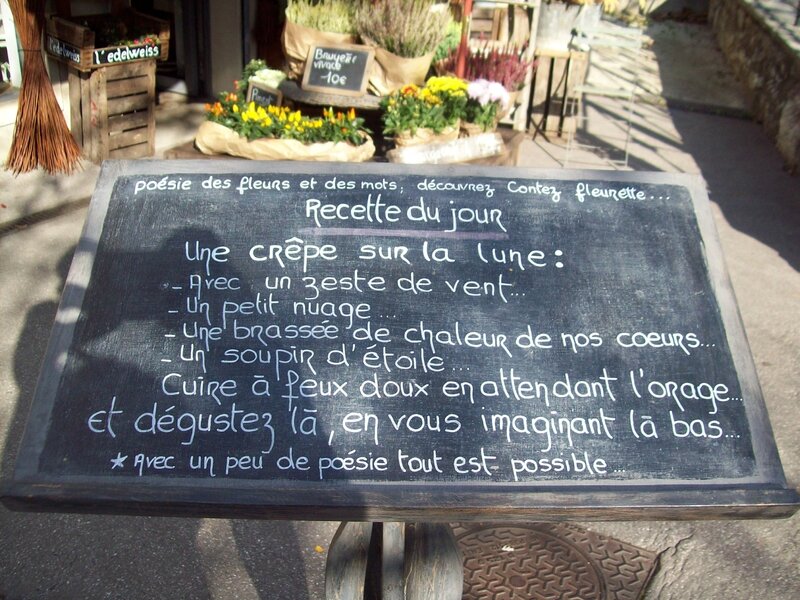 l'edelweiss
Bruyère
vivace
10€
poésie des fleurs et des mots, découvrez Contez fleurette...
Recette du jour
Une crêpe sur la lune :
- Avec un zeste de vent...
- Un petit nuage...
- Une brassée de chaleur de nos coeurs...
- Un soupir d'étoile...
Cuire à feux doux en attendant l'orage...
et dégustez là, en vous imaginant là bas...
* Avec un peu de poésie tout est possible...